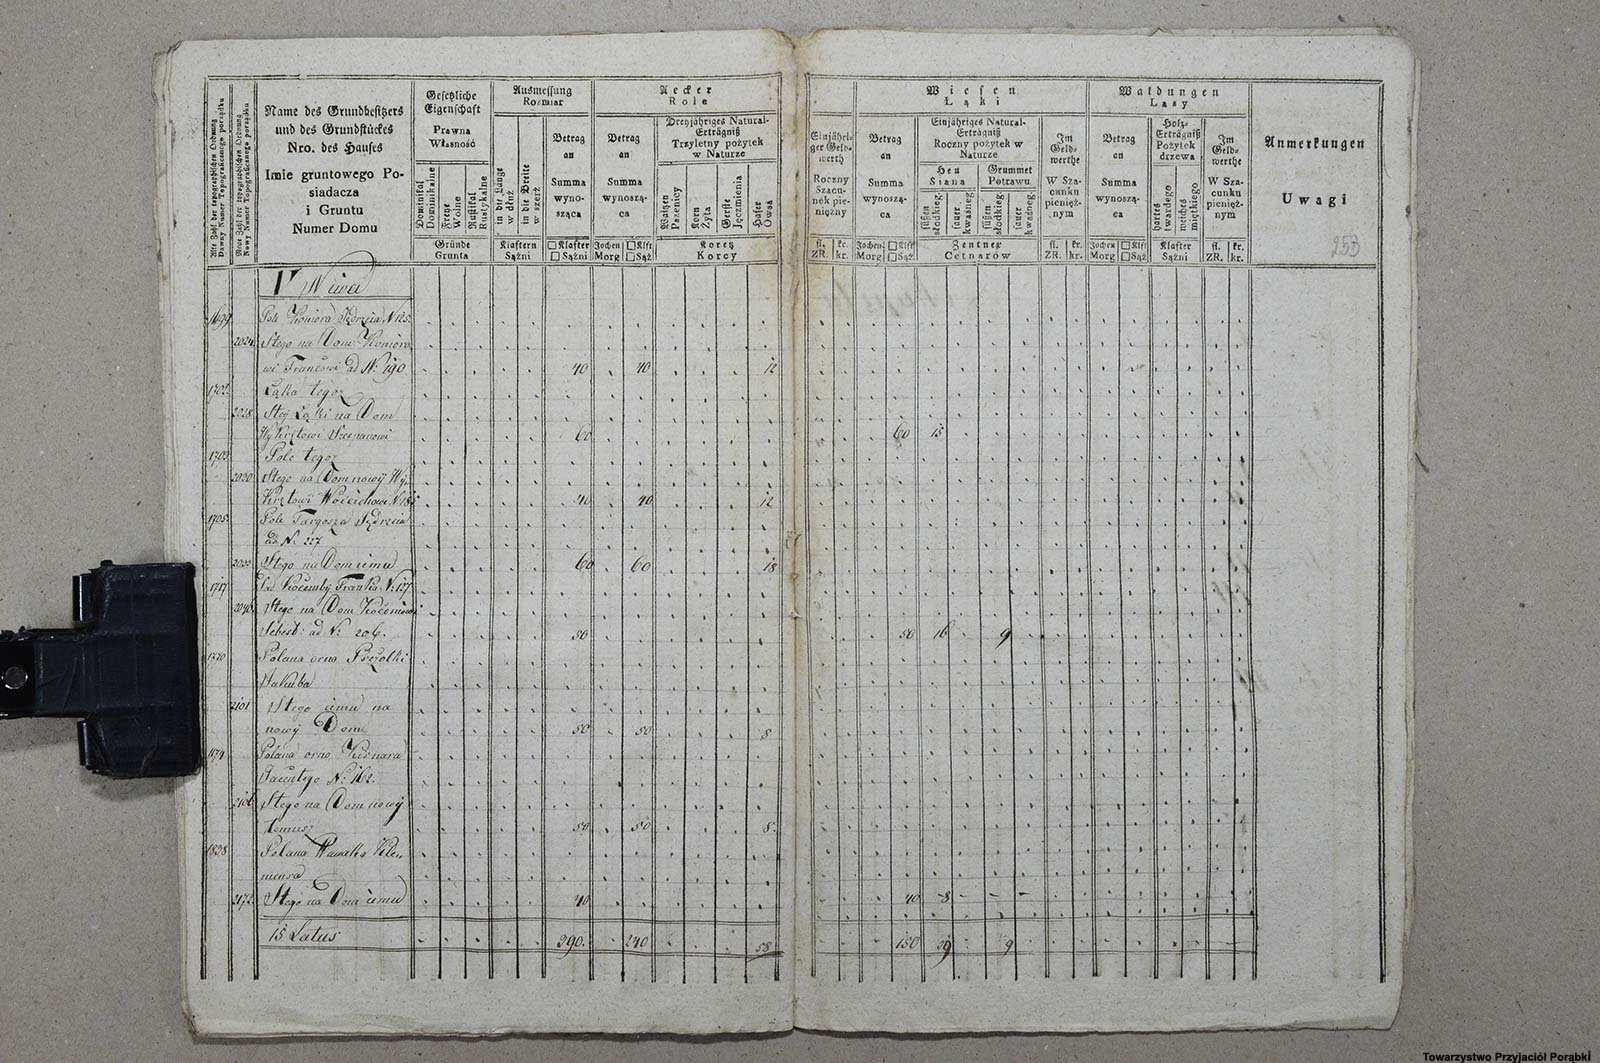 Alte Zahl der topographischen Ordnung
Dawny Numer Topograficznego porządku
Neue Zahl der topographischen Ordnung
Nowy Numer Topograficznego porządku
Name des Grundbesitzers
und des Grundstückes
Nro. des Hauses
Imie gruntowego Po-
siadacza
i Gruntu
Numer Domu
Gesetzliche
Eigenschaft
Prawna
Własność
Dominikal
Dominikalne
Freye
Wolne
Rustikal
Rustykalne
Gründe
Grunta
Ausmessung
Rozmiar
in die Länge
w dłuż
in die Breite
w szerz
Klaftern
Sążni
Betrag
an
Summa
wyno-
sząca
□ Klafter
□ Sążni
Aecker
Role
Betrag
an
Summa
wynoszą-
ca
Jochen □ Klft
Morg □ Sąż
Dreyjähriges Natural-
Erträgniß
Trzyletny pożytek
w Naturze
Waitzen
Pszenicy
Korn
Zyta
Gerste
Jęczmienia
Hafer
Owsa
Koretz
Korcy
Einjähri-
ger Geld-
werth
Roczny
Szacu-
nek pie-
niężny
fl. kr.
ZR. kr.
Wiesen
Łąki
Betrag
an
Summa
wynoszą-
ca
Jochen □ Klft
Morg □ Sąż
Einjähriges Natural-
Erträgniß
Roczny pożytek w
Naturze
Heu
Siana
Grummet
Potrawu
süßen
słodkieg.
sauer
kwaśneg.
süßen
słodkieg.
sauer
kwaśneg.
Zentner
Cetnarów
Im
Geld-
werthe
W Sza-
cunku
pienięż-
nym
fl. kr.
ZR. kr.
Waldungen
Lasy
Betrag
an
Summa
wynoszą-
ca
Jochen □ Klft
Morg □ Sąż
Holz-
Erträgniß
Pożytek
drzewa
hartes
twardego
weiches
miętkiego
Klafter
Sążni
Im
Geld-
werthe
W Sza-
cunku
pienięż-
nym
fl. kr.
ZR. kr.
Anmerkungen
Uwagi
253
V Niwa
1699 Pole Komora Jędrzeia N 125.
2024 Stego na Dom Komoro
wi Franćowi ad N: 190 40 40 12
1702 Łąka tegoż
2028 Stey Łąki na Dom
Wykrętowi Szczepanowi 60 60 15
1703 Pole tegoż
2030 Stego na Dom nowy Wy,
Krętowi Woićichowi N 185 40 40 12
1705 Pole Targosza Jędrzeia
ad N: 227
Stego na Dom iemu 60 60 18
1717 N: 177
Stego na Dom
Sebest: ad N: 206. 50 50 16 9
Polana orna
Jakuba
2101 Stego iemu na
nowy Dom 50 50 8
1879 Polana orna
Jacentego N: 162.
Stego na Dom nowy
temuż 50 50 8.
1838 Polana Kle,
mensa
2172 Stego na Dom iemu 40 40 8
15 Latus 290. 240 58 150 29 9
Towarzystwo Przyjaciół Porąbki